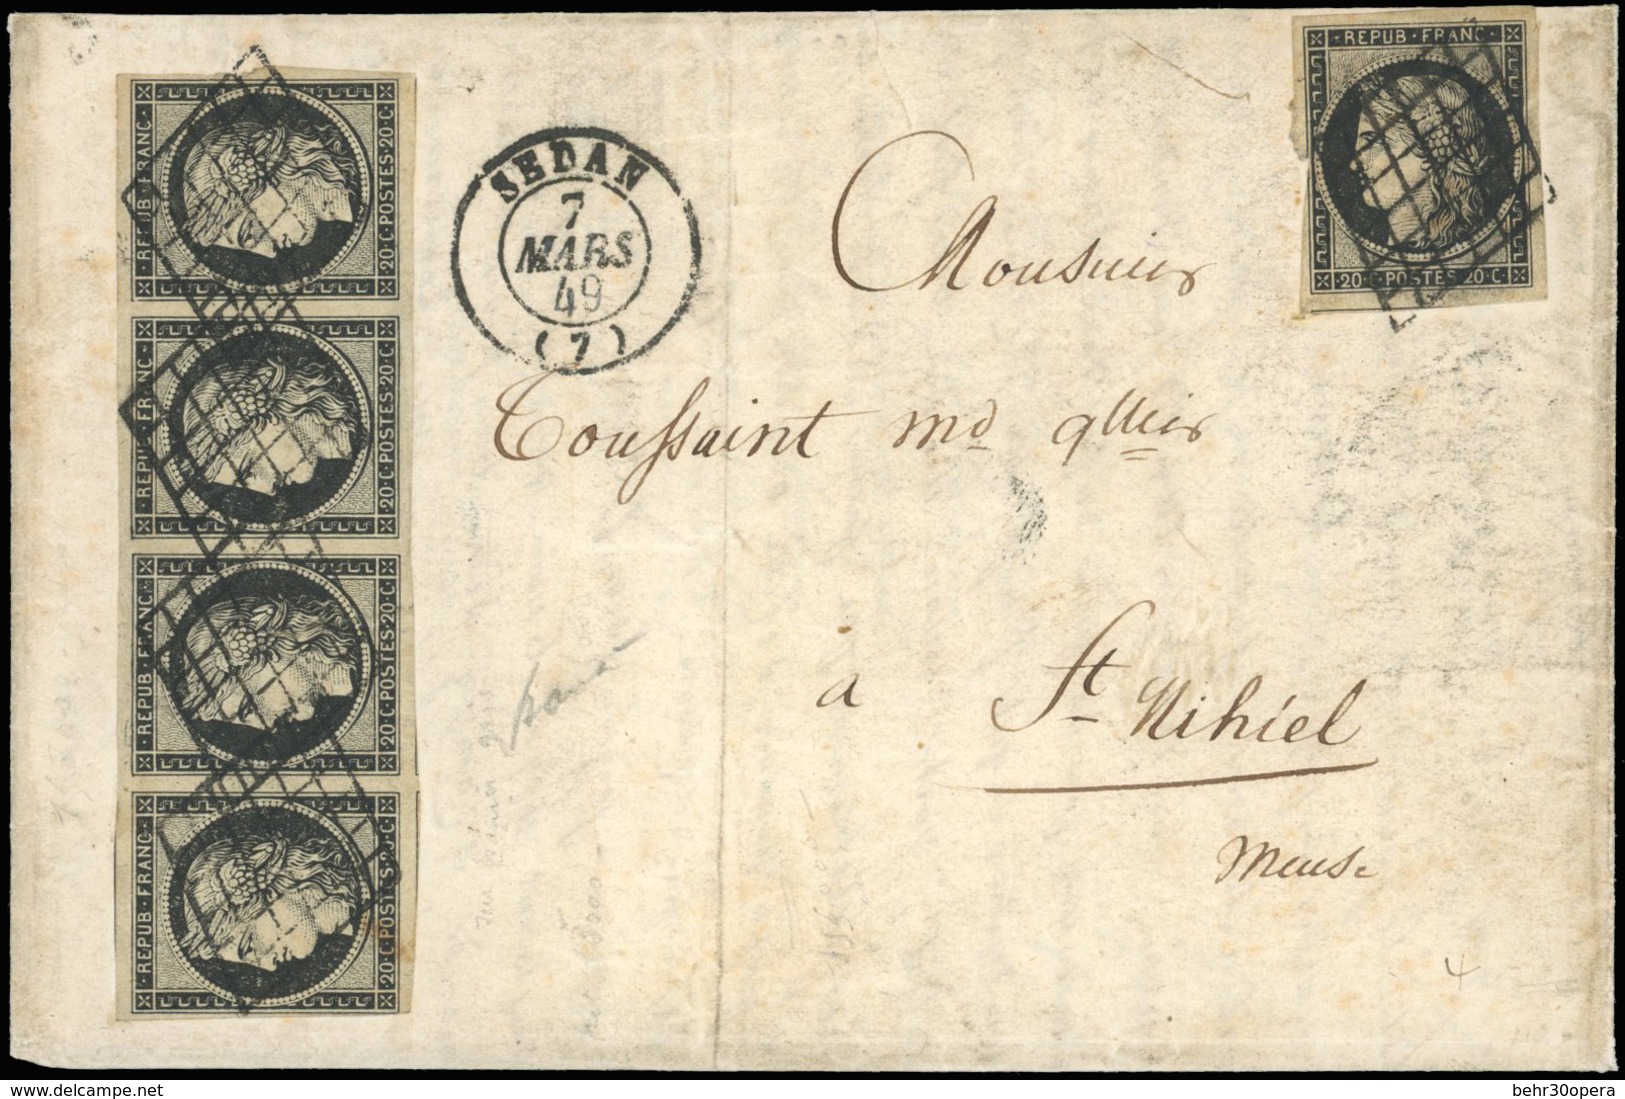 REPUB·FRANC·
20·C·POSTES·20·C·
REPUB·FRANC·
20·C·POSTES·20·C·
REPUB·FRANC·
20·C·POSTES·20·C·
REPUB·FRANC·
20·C·POSTES·20·C·
SEDAN
7
MARS
49
(7)
REPUB·FRANC·
20·C·POSTES·20·C·
Monsieur
Toussaint md qllier
a St Mihiel
Meuse
4
delcampe.net
behr30opera